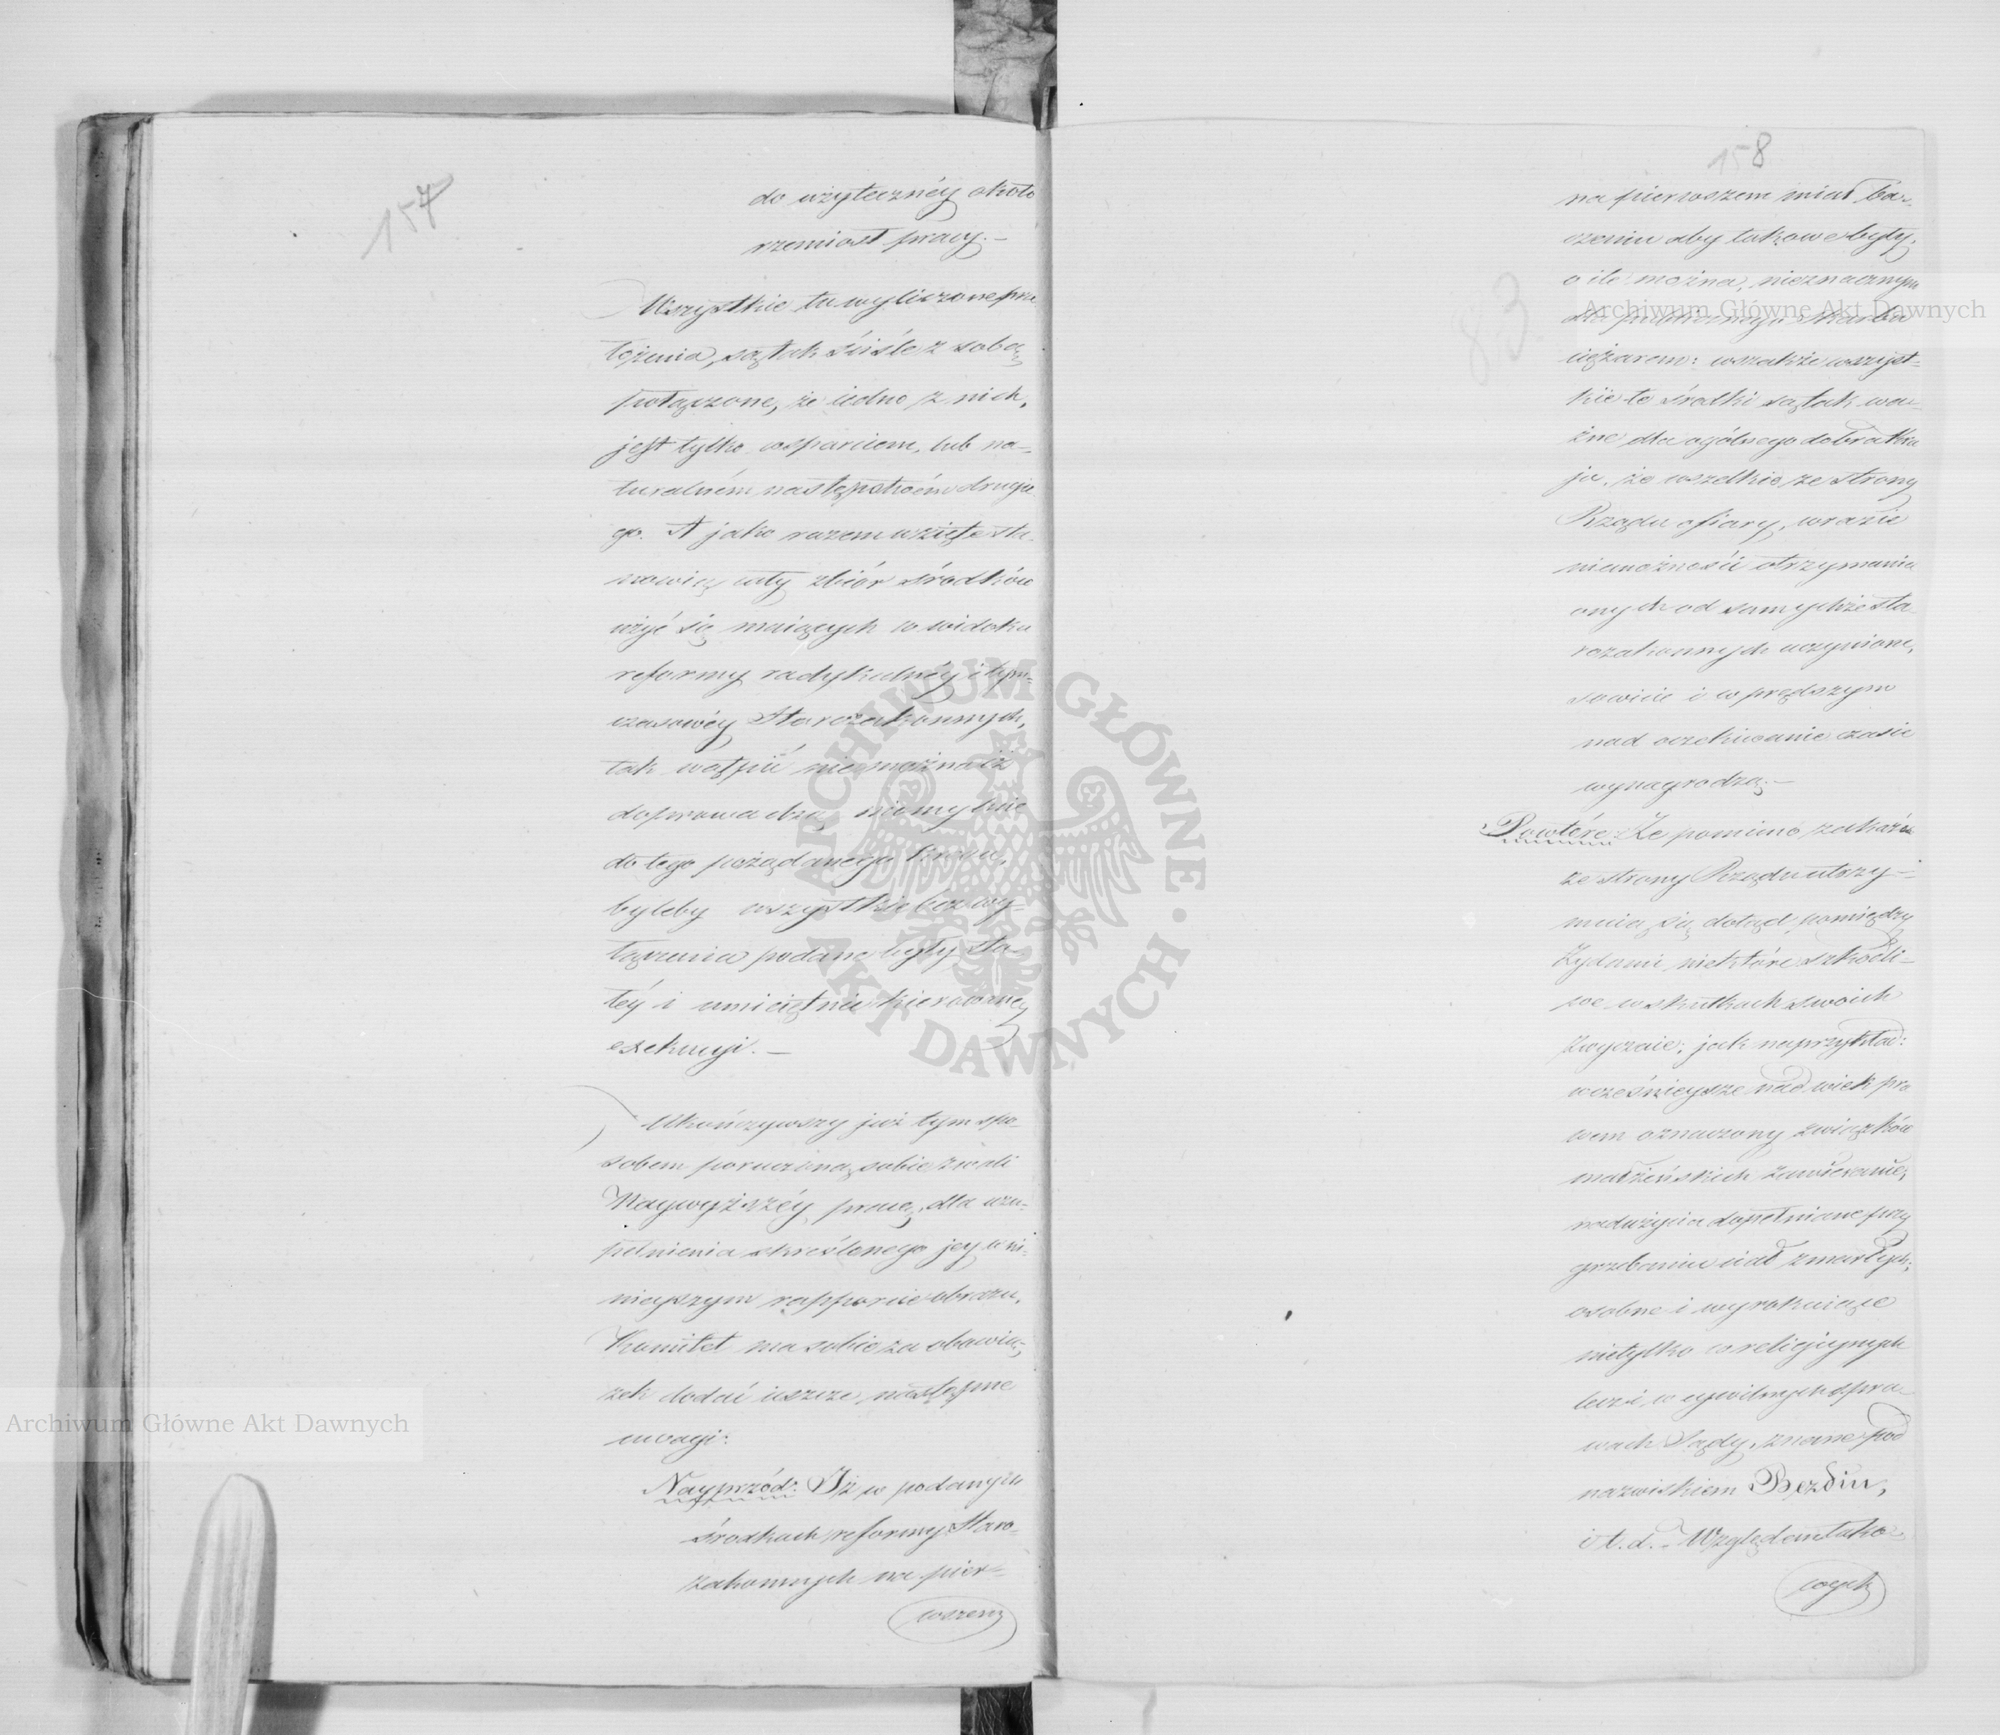 157
do użyteczney około
rzemiost pracy. –
Wszystkie tu wyliczone prze
łożenia, są tak ściśle z sobą
połączone, że iedno z nich,
jest tylko wsparciem, lub na-
turalném następstwem drugie
go. A jako razem wzięte sta-
nowią cały zbiór środków
użyć się maiących w widoku
reformy radykalnéy i tym-
czasowéy Starozakonnych,
tak wątpić nie można iż
doprowadzą niemylnie
do tego pożądanego kresu,
byleby wszystkie bez wy-
łączenia podane były sta-
łéy i umieiętnie kierowaney
exekucyi. –
Ukończywszy już tym spo-
sobem poruczoną sobie z woli
Naywyższéy pracę, dla uzu-
pełnienia skreślonego jey w ni-
nieyszym rapporcie obrazu,
Komitet ma sobie za obowią-
zek dodać ieszcze następne
uwagi:
Nayprzód: Iż w podanych
środkach reformy Staro-
zakonnych na pier-
wszem
158
83
na pierwszem miał ba-
czeniu aby takowe były,
o ile można, nieznacznym
dla publicznego Skarbu
ciężarem: wszakże wszyst-
kie te środki są tak wa-
żne dla ogólnego dobra Kra
ju, że wszelkie ze strony
Rządu ofiary, w razie
niemożności otrzymania
onych od samychże sta-
rozakonnych uczynione,
sowicie i w prędszym
nad oczekiwanie czasie
wynagrodzą. –
Powtóre: Że pomimo zakazów
ze strony Rządu utrzy-
muią się dotąd pomiędzy
Żydami niektóre szkodli-
we w skutkach swoich
zwyczaie, jak naprzykład:
wcześnieysze nad wiek pra
wem oznaczony związków
małżeńskich zawieranie;
nadużycia dopełniane przy
grzebaniu ciał zmarłych;
osobne i wyrokuiące
nietylko w religiynych
lecz i w cywilnych spra-
wach Sądy, znane pod
nazwiskiem Bezdin,
i t. d. – Względem tako-
wych
Archiwum Główne Akt Dawnych
Archiwum Główne Akt Dawnych
ARCHIWUM GŁÓWNE · AKT DAWNYCH ·